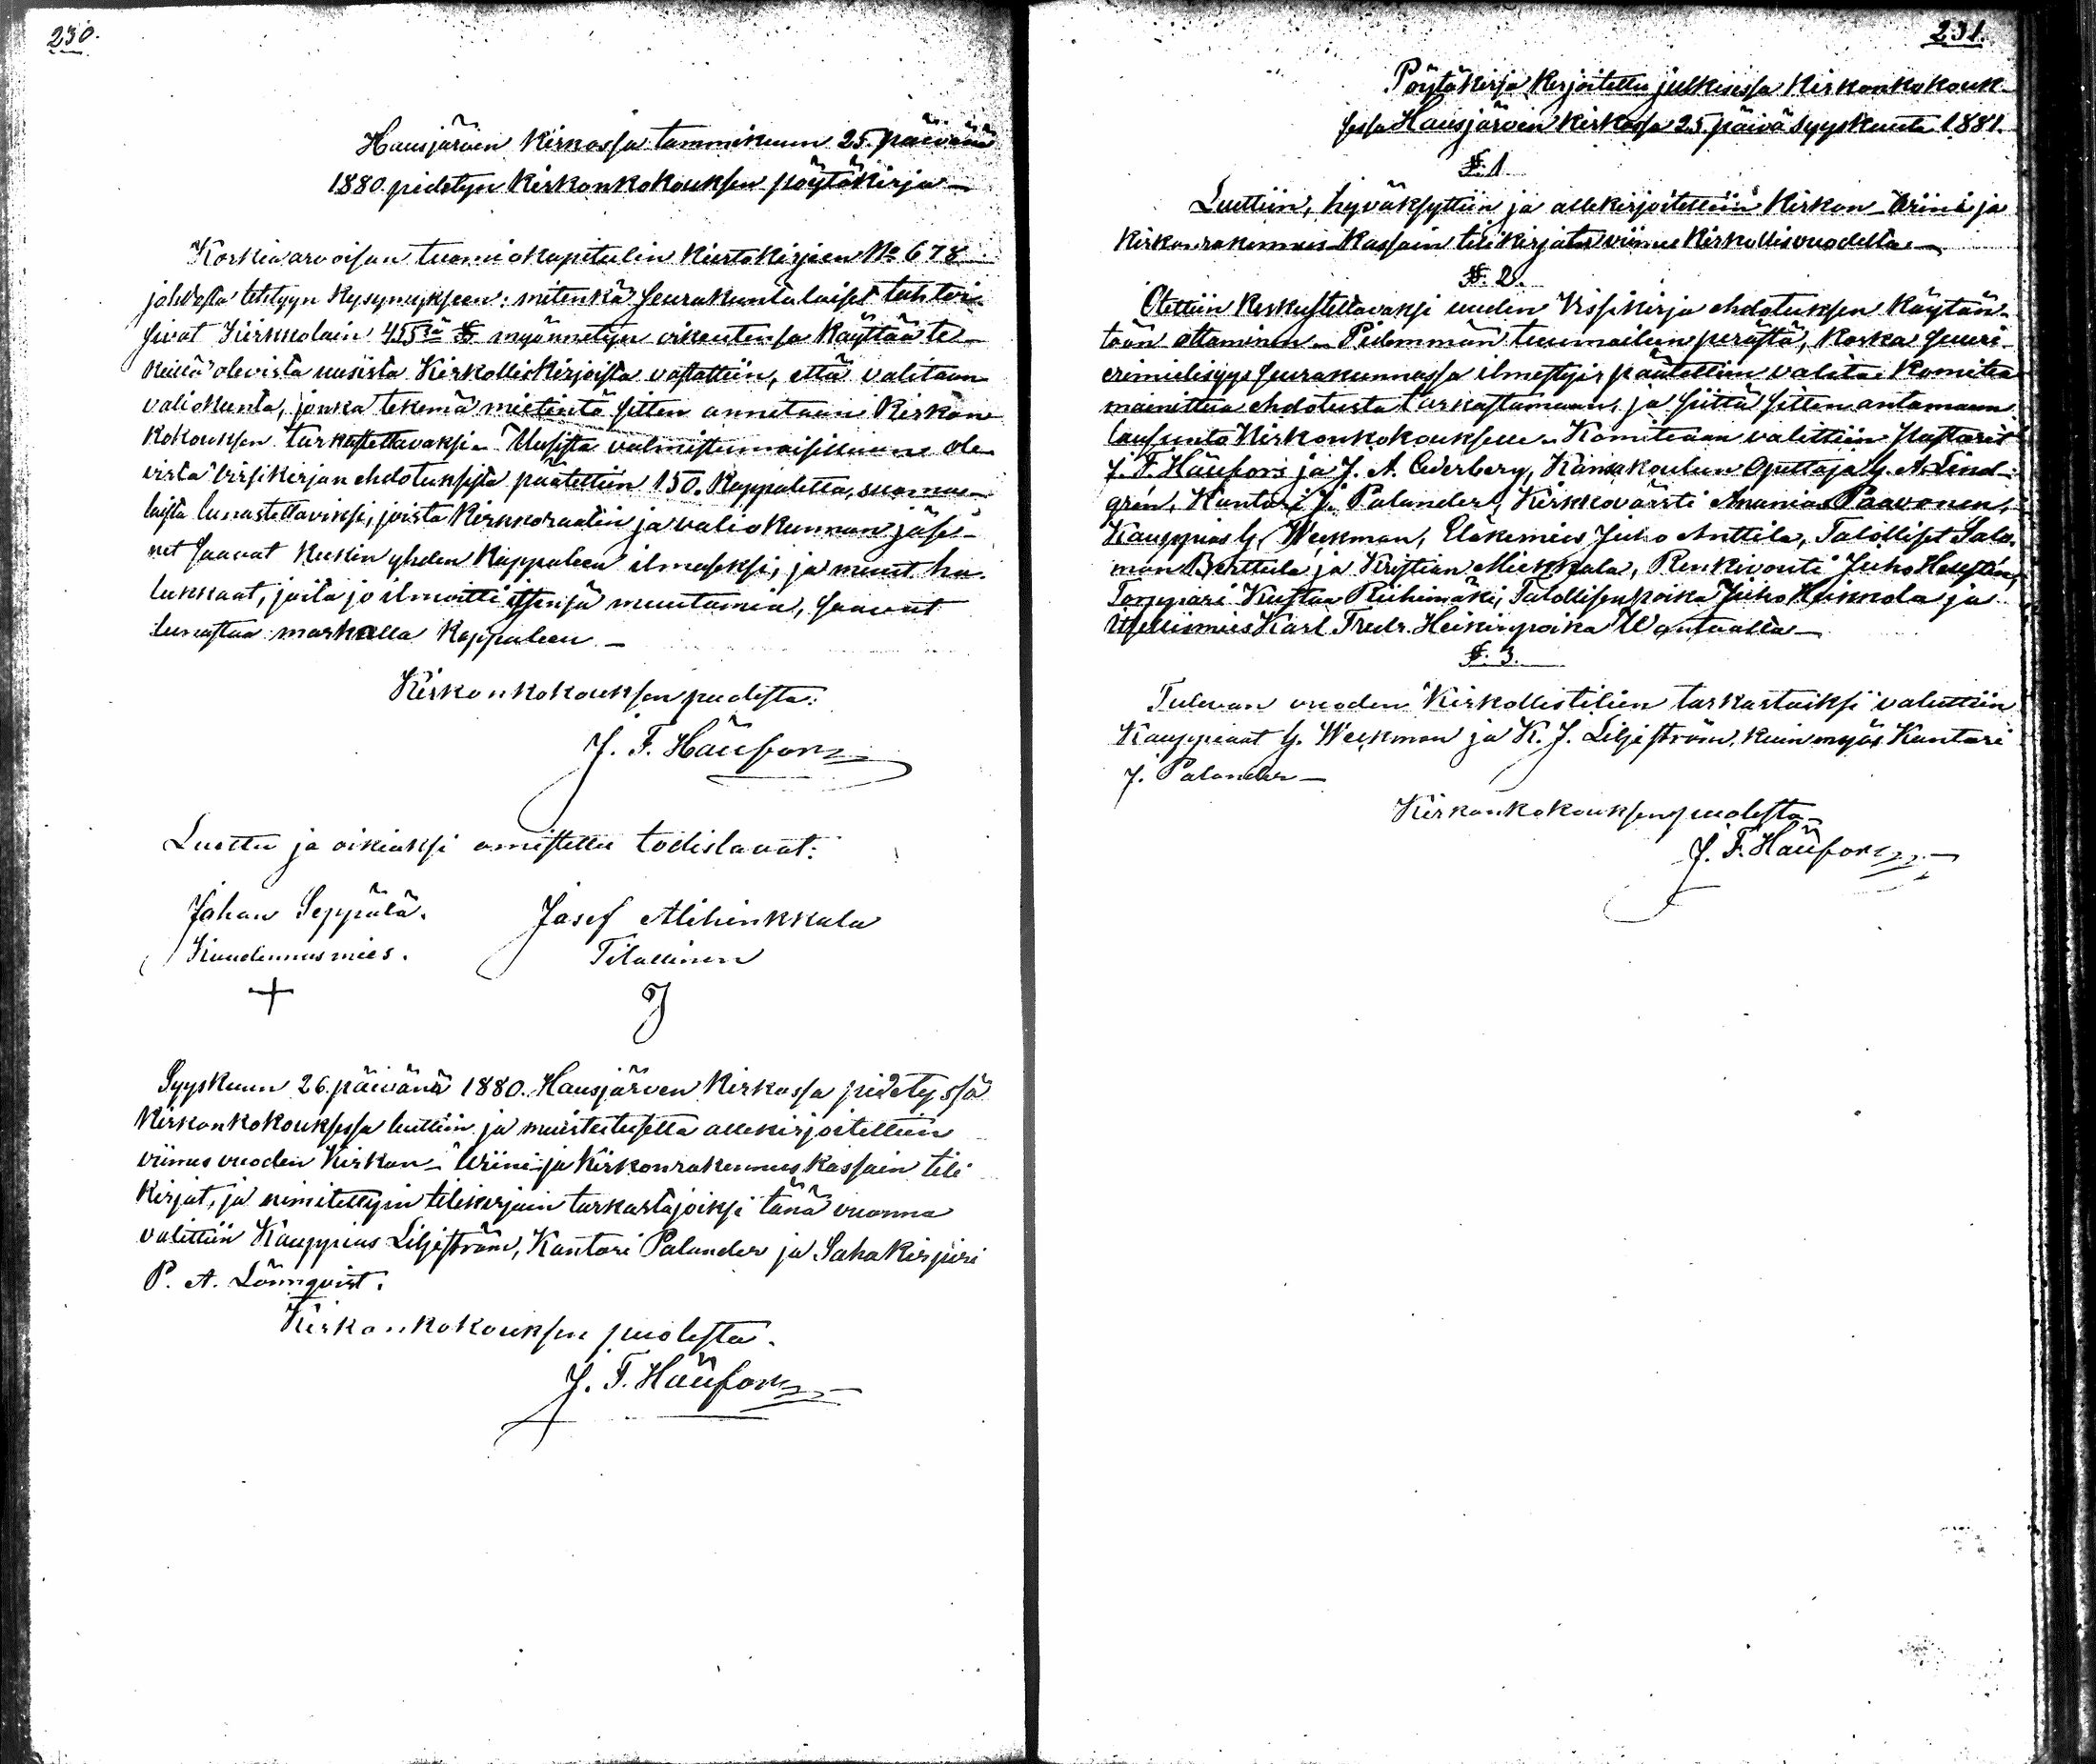 230.
Hausjärven kirkossa tammikuun 25. päivänä
1880 pidetyn kirkonkokouksen pöytäkirja —
Korkiaarvoisan tuomiokapitulin kiertokirjeen No 678
johdosta tehtyyn kysymykseen: mitenkä seurakuntalaiset tahtoi-
sivat Kirkkolain 455 §§ myönnetyn oikeutensa käyttää te-
keillä olevista uusista Kirkolliskirjoista vastattiin, että valitaan
valiokunta, jonka tekemä mietintö sitten annetaan Kirkon
kokouksen tarkastettavaksi. Uusista valmistumaisillaan ole-
vista virsikirjan ehdotuksista päätettiin 150. kappaletta, suoma-
laista lunastettaviksi, joista kirkkoraatin ja valiokunnan jäse-
net saavat kukin yhden kappaleen ilmaseksi, ja muut ha-
lukkaat, joita jo ilmoitti itsensä muutamia, saavat
lunastaa markalla kappaleen —
Kirkonkokouksen puolesta:
J. F. Häufors
Luettu ja oikiaksi omistettu todistavat:
Johan Seppälä. Josef Alihinkkala
Kuudennusmies. Tilallinen
+
Syyskuun 26. päivänä 1880. Hausjärven kirkossa pidetyssä
kirkonkokouksessa luettiin ja muistutusetta allekirjoitettiin
viimes vuoden Kirkon- Wiini- ja kirkonrakennus kassain tili-
kirjat, ja nimitettyin tilikirjain tarkastajoiksi tänä vuonna
valittiin Kauppias Liljeström, Kantori Palander ja Sahakirjuri
P. A. Lönnqvist.
Kirkonkokouksen puolesta.
J. F. Häufors
231.
Pöytäkirja kirjoitettu julkisessa Kirkonkokouk-
sessa Hausjärven kirkossa 25. päivä Syyskuuta 1881.
§. 1.
Luettiin, hyväksyttiin ja allekirjoitettiin Kirkon- Wiini- ja
kirkonrakennus-kassain tilikirjat viimes kirkollisvuodelta —
§. 2.
Otettiin keskusteltavaksi uuden Virsikirja ehdotuksen käytän-
töön ottaminen. Pidemmän tuumailun perästä, koska suuri
erimielisyys seurakunnassa ilmestyi, päätettiin valita komitea
mainittua ehdotusta tarkastamaan, ja siittä sitten antamaan
lausunto Kirkonkokoukselle. Komiteaan valittiin Pastorit
J. F. Häufors ja J. A. Cederberg, Kansakoulun Opettaja G. A. Lind-
grén, Kantori J. Palander, Kirkkovärsti Ananias Paavonen,
Kauppias G. Weckman, Eläkemies Juho Anttila, Talolliset Salo-
mon Penttilä ja Kristian Mickkala, Renkivouti Juho Hausten,
Torppari Kustaa Riihimäki, Talollisenpoika Juho Heikkola ja
Itsellismies Karl Fredr. Heikinpoika Wantaalta —
§. 3.
Tulevan vuoden Kirkollistilien tarkastaiksi valittiin
Kauppiaat G. Weckman ja K. J. Liljeström, kuin myös Kantori
J. Palander —
Kirkonkokouksen puolesta
J. F. Häufors